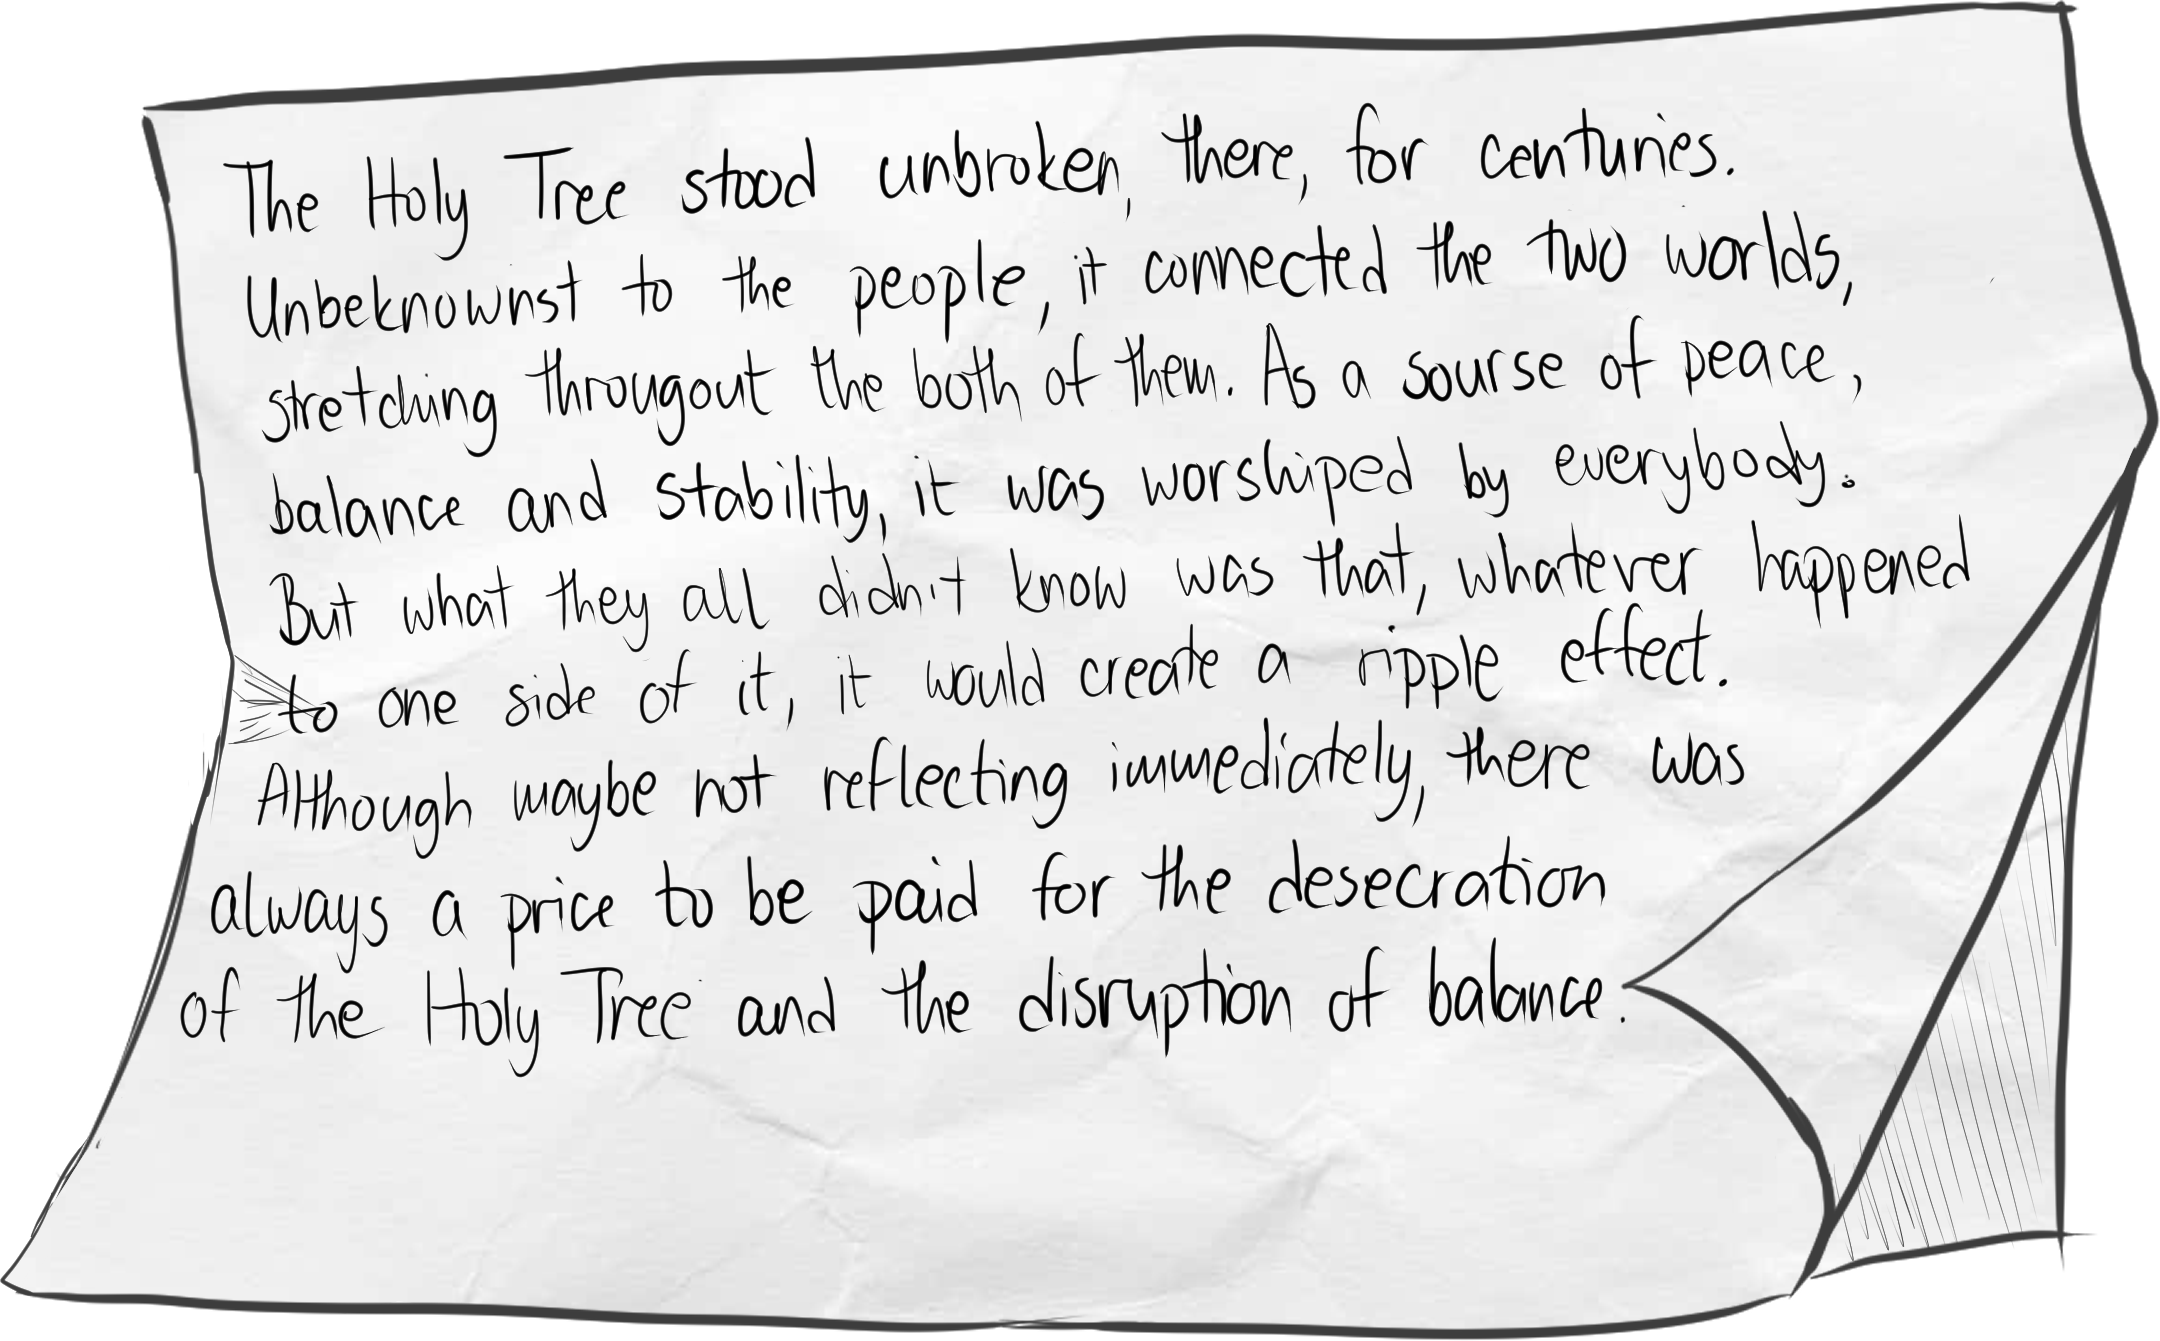 The Holy Tree stood unbroken, there, for centuries.
Unbeknownst to the people, it connected the two worlds,
stretching througout the both of them. As a sourse of peace,
balance and stability, it was worshiped by everybody.
But what they all didn't know was that, whatever happened
to one side of it, it would create a ripple effect.
Although maybe not reflecting immediately, there was
always a price to be paid for the desecration
of the Holy Tree and the disruption of balance.